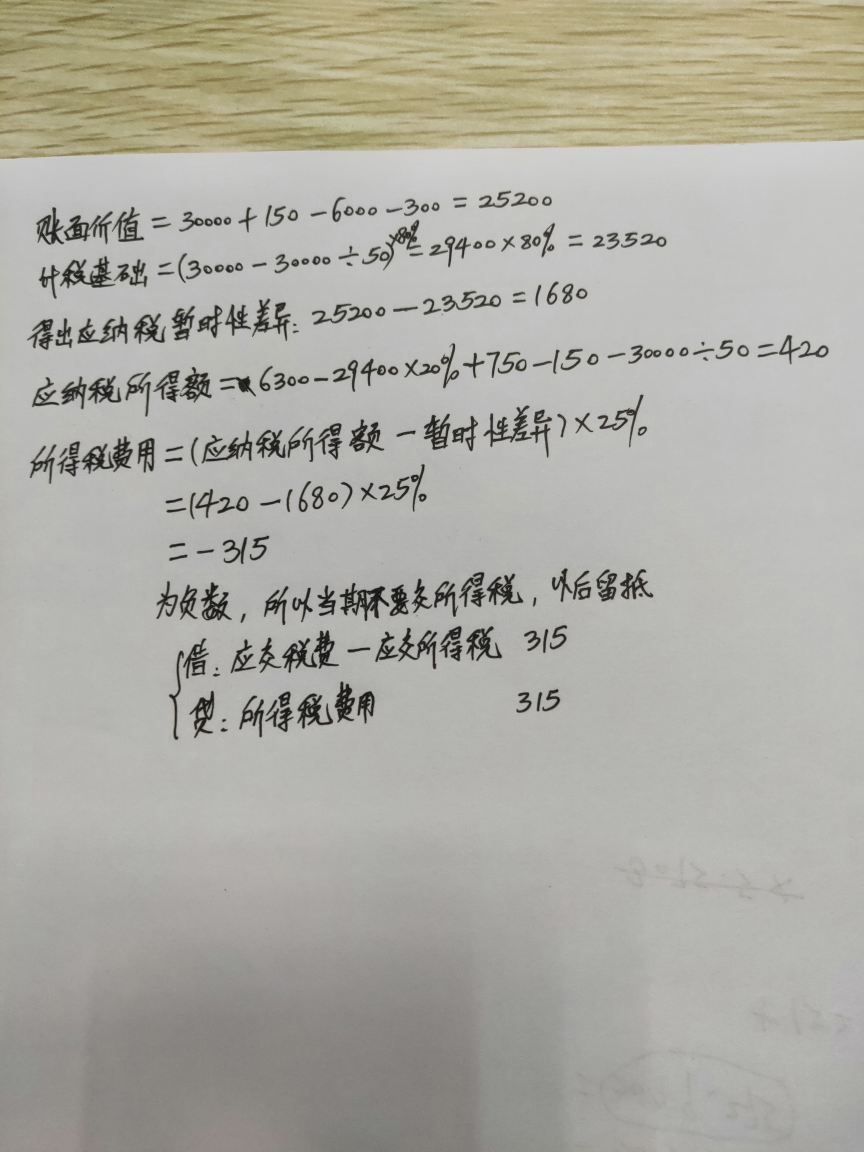 账面价值=30000+150-6000-300=25200
计税基础=(30000-30000÷50)×80%=29400×80%=23520
得出应纳税暂时性差异:25200-23520=1680
应纳税所得额=6300-29400×20%+750-150-30000÷50=420
所得税费用=(应纳税所得额-暂时性差异)×25%
=(420-1680)×25%
=-315
为负数,所以当期不要交所得税,以后留抵
借:应交税费-应交所得税 315
贷:所得税费用 315